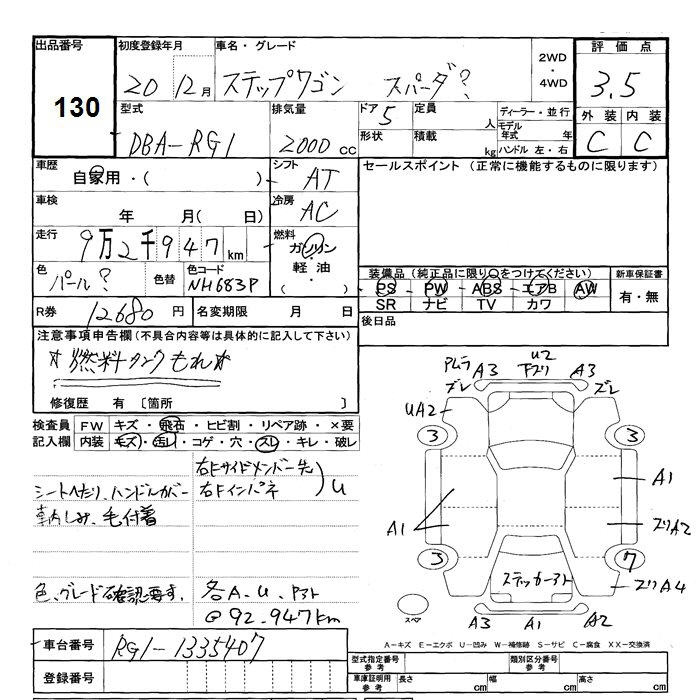 出品番号
130
初度登録年月
20 12月
車名・グレード
ステップワゴン スパーダ?
2WD
・
4WD
評価点
3.5
外装 内装
C C
型式
DBA-RG1
排気量
2000 cc
ドア 5
形状
定員
人
積載
kg
ディーラー・並行
モデル年式 年
ハンドル 左・右
車歴
自家用・( )
シフト
AT
車検
年 月( 日)
冷房
AC
走行
9万2千947km
燃料
ガソリン
・
軽油
色
パール?
色替
色コード
NH683P
R券 12680円
名変期限 月 日
セールスポイント (正常に機能するものに限ります)
装備品(純正品に限り○をつけてください)
PS PW ABS エアB AW
SR ナビ TV カワ
新車保証書
有・無
後日品
注意事項申告欄(不具合内容等は具体的に記入して下さい)
燃料タンクもれ
修復歴 有 〔箇所 〕
検査員記入欄
FW キズ・飛石・ヒビ割・リペア跡・×要
内装 キズ・汚レ・コゲ・穴・スレ・キレ・破レ
右Fサイドメンバー先
右Fインパネ
U
シートへたり、ハンドルカバー
車内しみ、毛付着
色、グレード確認要す、
各A.U.
@92.947km
車台番号 RG1-1335407
登録番号
ズレ A3 U2 A3 ズレ
UA2
3 3
A1
A1 ズリA2
3 7
ステッカー
ズリA4
スペア
A3 A1 A2
A-キズ E-エクボ U-凹み W-補修跡 S-サビ C-腐食 XX-交換済
型式指定番号 参考
類別区分番号 参考
車庫証明用 参考
長さ cm
幅 cm
高さ cm